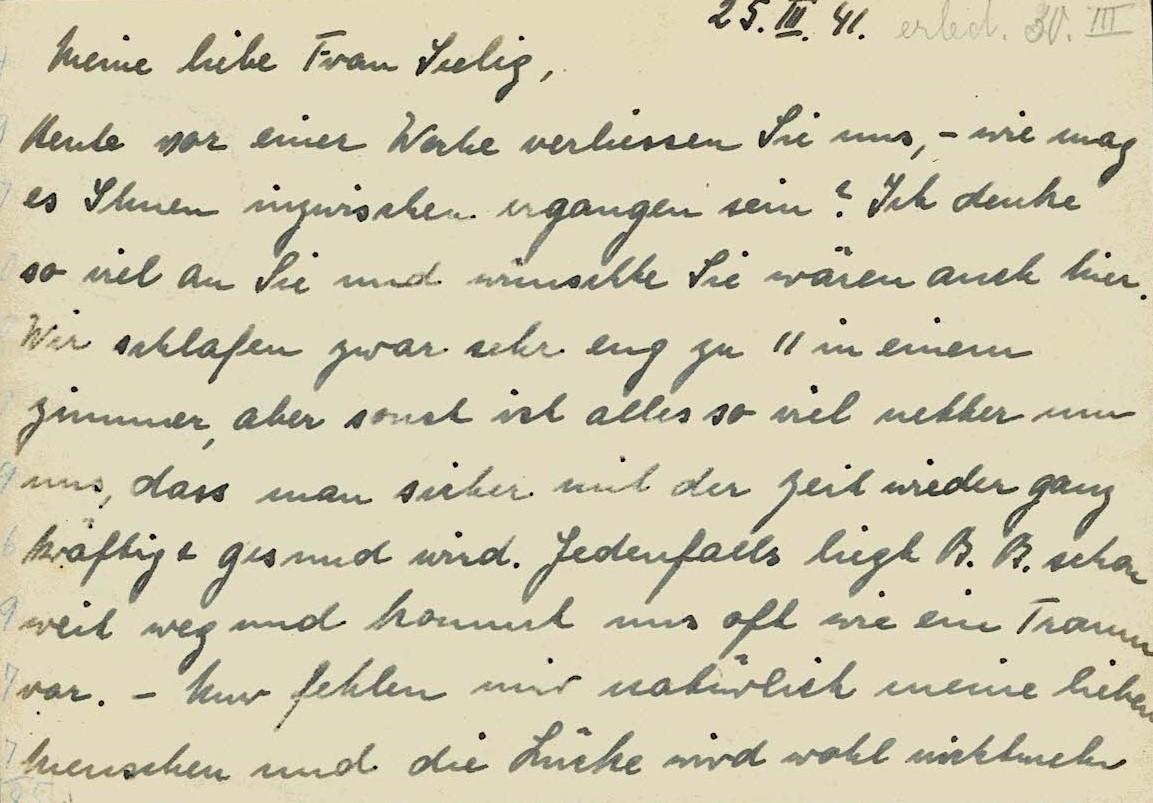 25. III. 41. erled. 30. III
Meine liebe Frau Seelig,
Heute vor einer Woche verliessen Sie uns, - wie mag
es Ihnen inzwischen ergangen sein? Ich denke
so viel an Sie und wünschte Sie wären auch hier.
Wir schlafen zwar sehr eng zu 11 in einem
Zimmer, aber sonst ist alles so viel netter um
uns, dass man sicher mit der Zeit wieder ganz
kräftig & gesund wird. Jedenfalls liegt B. B. schon
weit weg und kommt uns oft wie ein Traum
vor. - Nur fehlen mir natürlich meine lieben
Menschen und die Lücke wird wohl nicht mehr